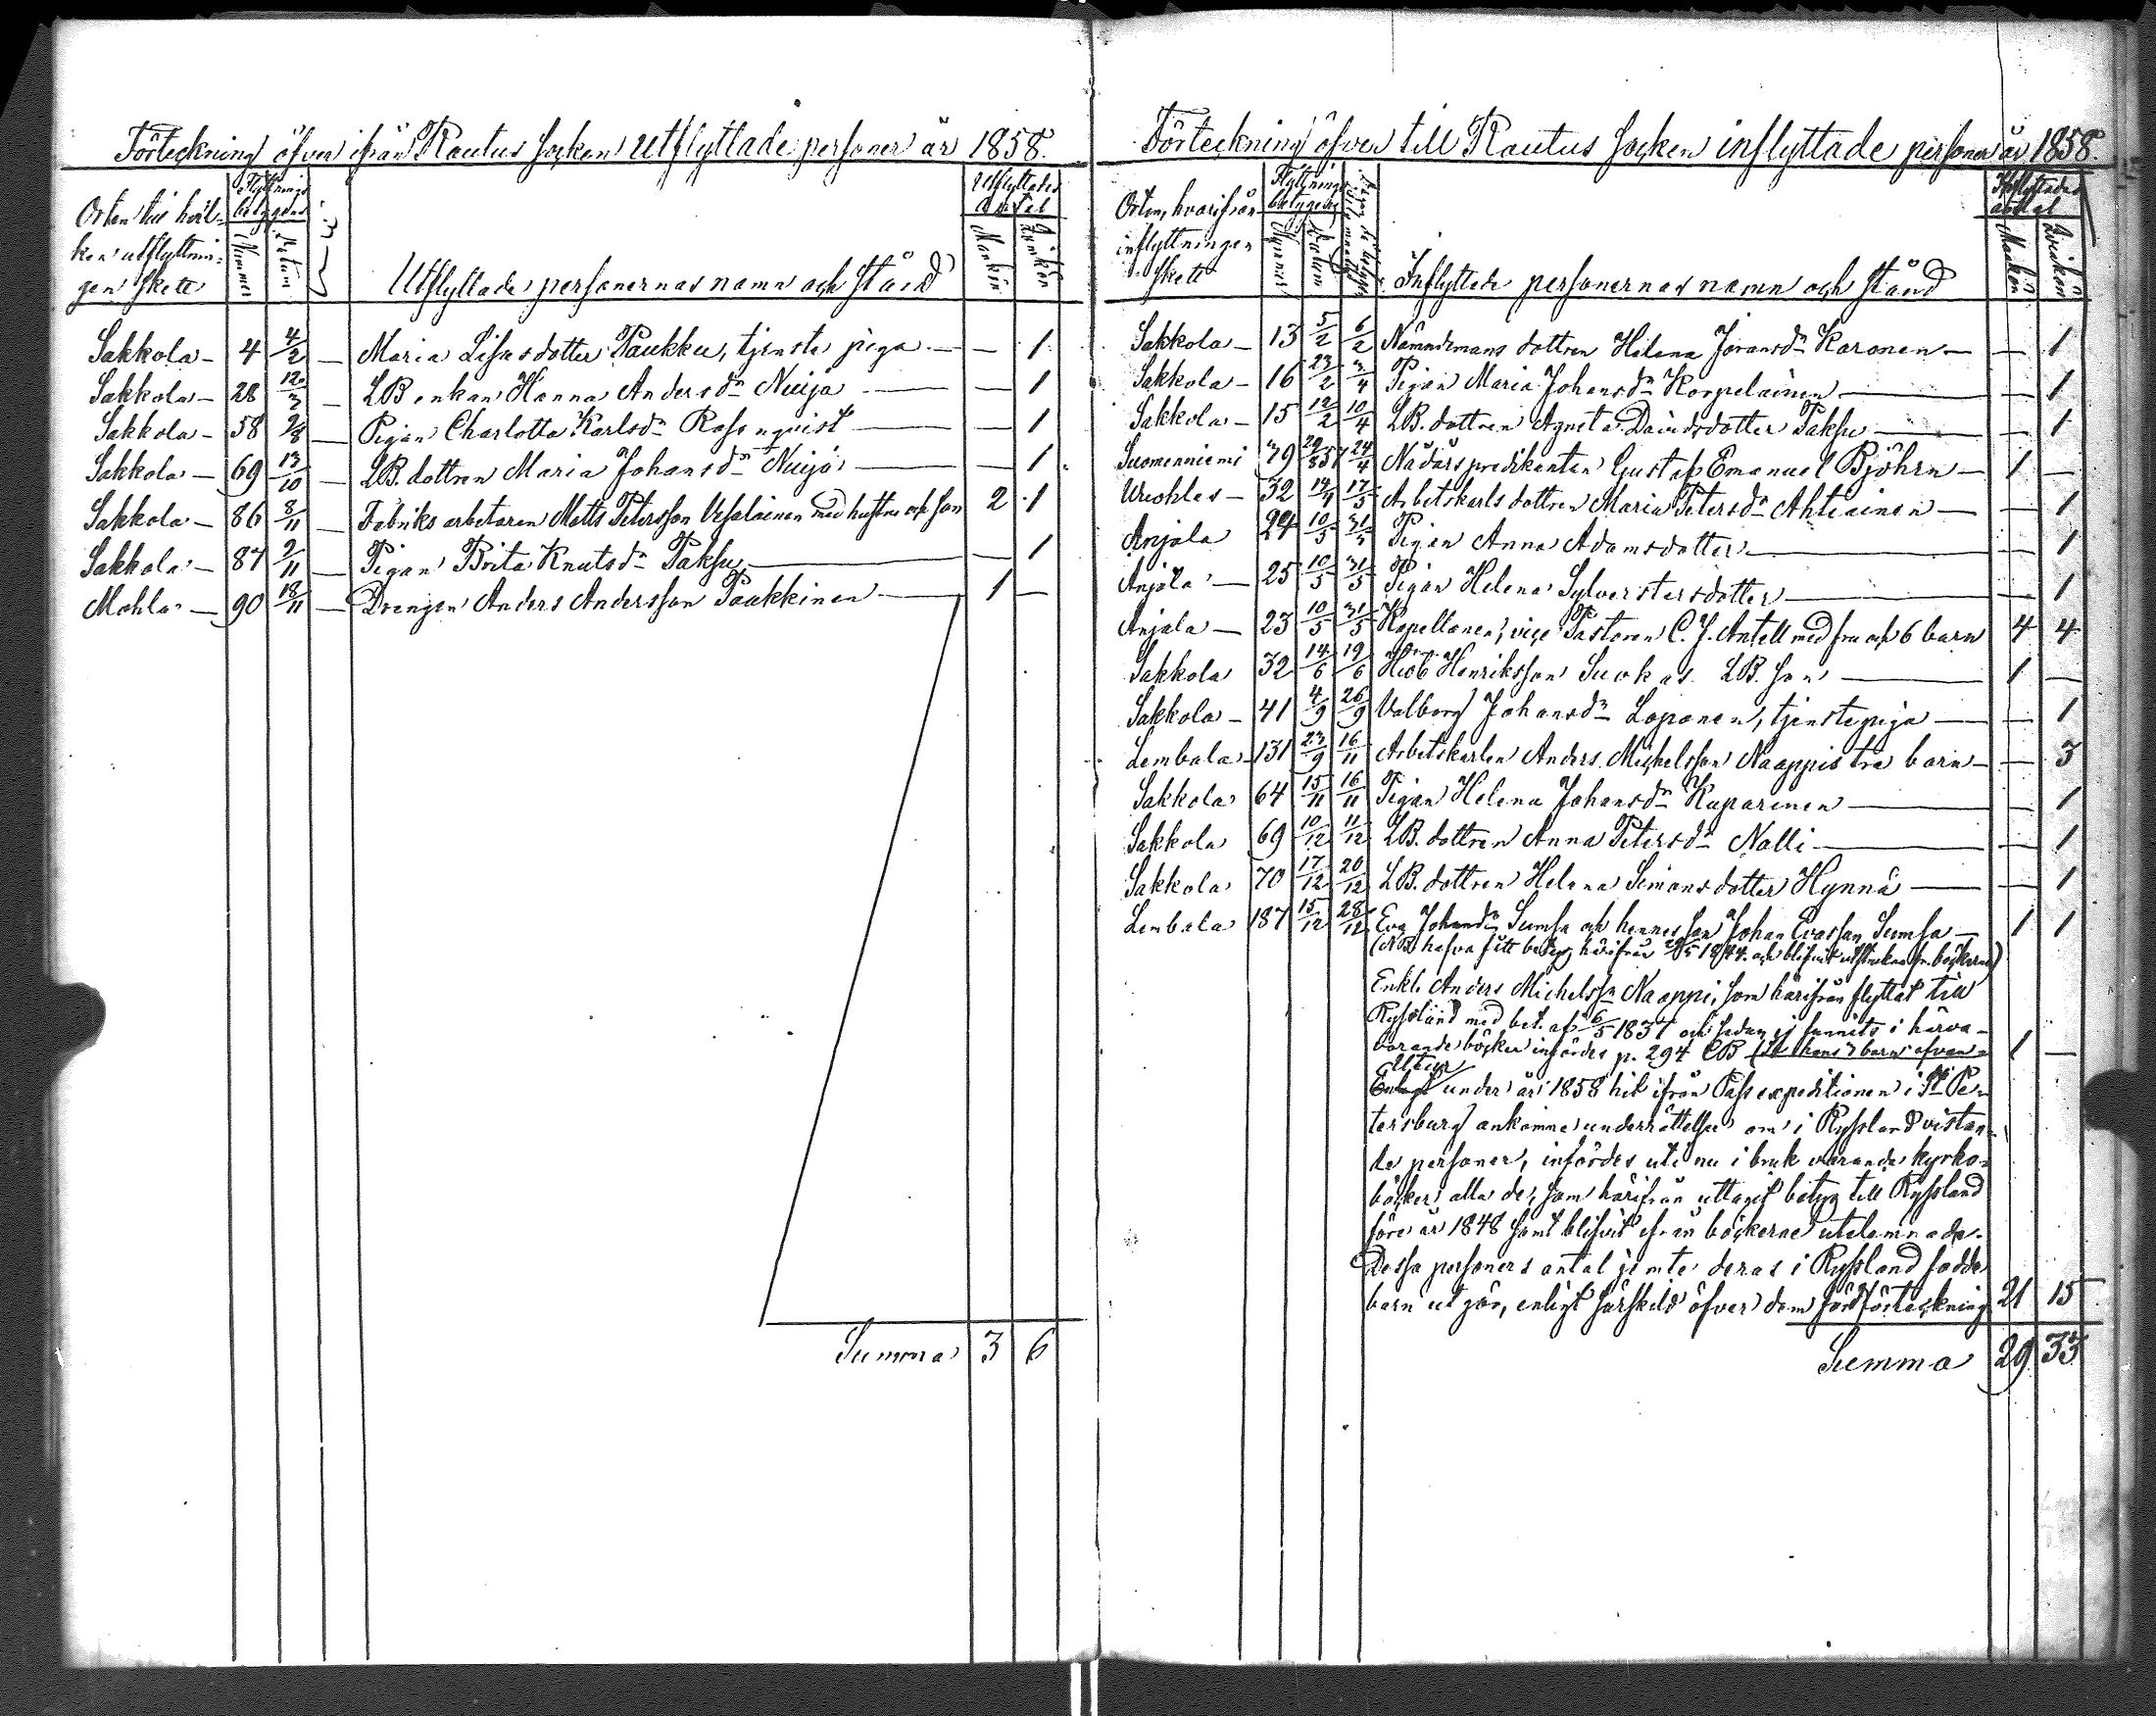 Förteckning öfver ifrån Rautus socken utflyttade personer år 1858.
Orten till hvil-
ken utflyttnin-
gen skett
Flyttnings
betygens
Nummer
Datum
Utflyttade personernas namn och stånd
Utflyttades
Antal
Mankön
Qvinkön
Sakkola - 4 4/2 - Maria Lisasdotter Paukku, tjenste piga - - 1
Sakkola - 28 12/3 - LB enkan Hanna Andersdr Nuija - - 1
Sakkola - 58 2/8 - Pigan Charlotta Karlsdr Rosenqvist - - 1
Sakkola - 69 13/10 - LB. dottren Maria Johansdr Nuija - - 1
Sakkola - 86 8/11 - Fabriks arbetaren Matts Petersson Vesalainen med hustru och son 2 1
Sakkola - 87 9/11 - Pigan Brita Knutsdr Paksu - - 1
Mohla - 90 18/11 - Drengen Anders Andersson Paukkinen - 1 -
Summa 3 6
Förteckning öfver till Rautus socken inflyttade personer år 1858.
Orten, hvarifrån
inflyttningen
skett
Flyttnings
betygens
Nummer
Datum
Inflyttade personernas namn och stånd
Inflyttades
antal
Mankön
Qvinkön
Sakkola - 13 5/2 6/2 Nämndemans dottren Helena Göransdr Karonen - - 1
Sakkola - 16 23/2 3/4 Pigan Maria Johansdr Korpelainen - - 1
Sakkola - 15 12/2 10/4 LB. dottren Agneta Davidsdotter Paksu - - 1
Suomenniemi 79 29/8 57 24/4 Nådårspredikanten Gustaf Emanuel Björhn - 1 -
32 14/4 17/5 Arbetskarls dottren Maria Petersdr Ahtiainen - - 1
Anjala 24 10/5 31/5 Pigan Anna Adamsdotter - - 1
Anjala - 25 10/5 31/5 Pigan Helena Sylverstersdotter - - 1
Anjala - 23 10/5 31/5 Kapellanen, vice Pastoren C. J. Antell med fru och 6 barn 4 4
Sakkola 32 14/6 19/6 Hiob Henriksson Suokas LB. son - 1 -
Sakkola - 41 4/9 26/9 Valborg Johansdr Loponen, tjenstepiga - - 1
Lembala - 131 23/9 16/11 Arbetskarlen Anders Michelsson Naappis tre barn - - 3
Sakkola 64 15/11 16/11 Pigan Helena Johansdr Kuparinen - - 1
Sakkola 69 10/12 11/12 LB. dottren Anna Petersdr Nalli - - 1
Sakkola 70 17/12 20/12 LB. dottren Helena Simonsdotter Hynnä - - 1
Lembala 187 15/12 28/12 Eva Johansdr Sumsa och hennes son Johan Evasson Sumsa - 1 1
(NB. hafva fått betyg härifrån 1844. och blifvit utstrukna fr. böckerna)
Enkl. Anders Michelsson Naappi, som härifrån flyttat till
Ryssland med bet. af 6/5 1837 och sedan ej funnits i härva-
rande böcker infördes p. 294 CB (se hans 3 barn ofvan) 1 -
under år 1858 hit ifrån Pass expeditionen i St Pe-
tersburg ankomna underrättelser om i Ryssland vistan-
de personer, infördes uti nu i bruk varande kyrko-
böcker alla de, som härifrån uttagit betyg till Ryssland
före år 1848 samt blifvit ifrån böckerne utelemnade.
Dessa personers antal jemte deras i Ryssland födda
barn utgör, enligt särskild öfver dem förd förteckning 21 15
Summa 29 33